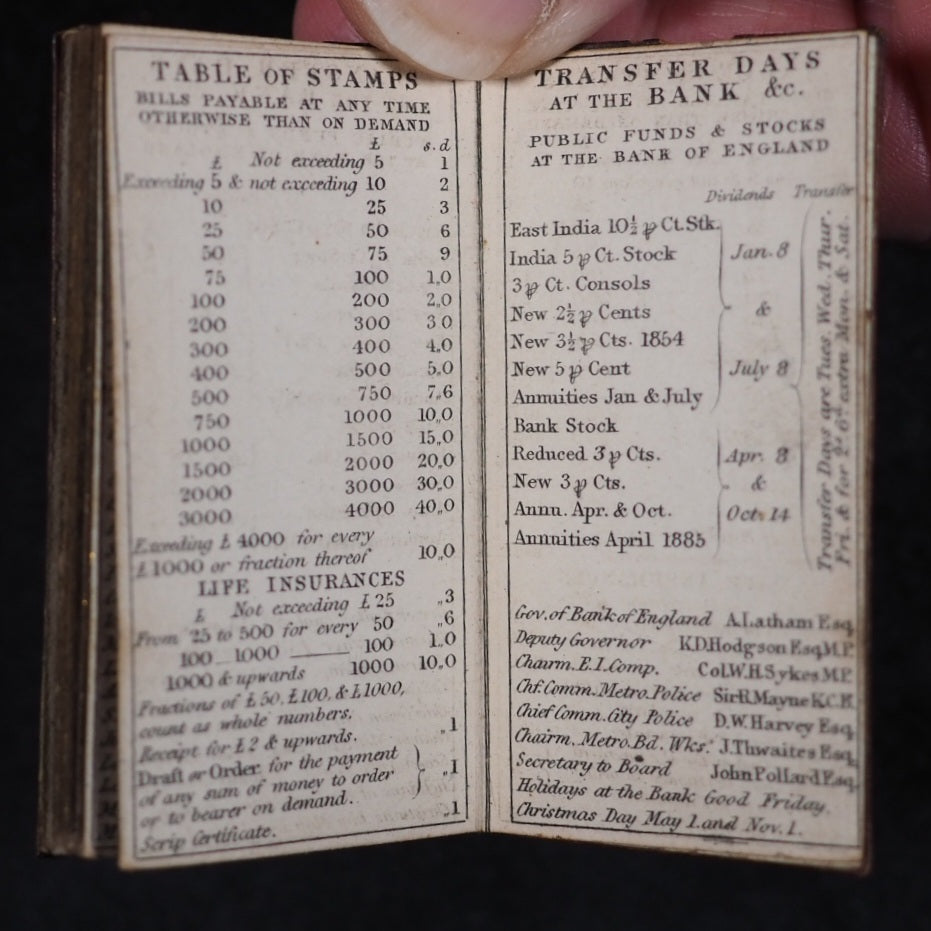 TABLE OF STAMPS
BILLS PAYABLE AT ANY TIME
OTHERWISE THAN ON DEMAND
£ s.d
£ Not exceeding 5 1
Exceeding 5 & not exceeding 10 2
10 25 3
25 50 6
50 75 9
75 100 1,,0
100 200 2,,0
200 300 3 0
300 400 4,,0
400 500 5,,0
500 750 7,,6
750 1000 10,,0
1000 1500 15,,0
1500 2000 20,,0
2000 3000 30,,0
3000 4000 40,,0
Exceeding £ 4000 for every
£1000 or fraction thereof 10,,0
LIFE INSURANCES
£ Not exceeding £25 ,,3
From 25 to 500 for every 50 ,,6
100 — 1000 —— 100 1,,0
1000 & upwards 1000 10,,0
Fractions of £50, £100, & £1000,
count as whole numbers.
Receipt for £2 & upwards. ,,1
Draft or Order for the payment
of any sum of money to order ,,1
or to bearer on demand.
Scrip Certificate. ,,1
TRANSFER DAYS
AT THE BANK &c.
PUBLIC FUNDS & STOCKS
AT THE BANK OF ENGLAND
Dividends Transfer
East India 10½ ⅌ Ct. Stk.
India 5 ⅌ Ct. Stock Jan. 8
3 ⅌ Ct. Consols
New 2½ ⅌ Cents &
New 3½ ⅌ Cts. 1854
New 5 ⅌ Cent July 8
Annuities Jan & July
Bank Stock
Reduced 3 ⅌ Cts. Apr. 8
New 3 ⅌ Cts. &
Annu. Apr. & Oct. Oct. 14
Annuities April 1885
Transfer Days are Tues. Wed. Thur.
Fri. & for 2s 6d extra Mon. & Sat.
Gov. of Bank of England A.Latham Esq.
Deputy Governor K.D.Hodgson Esq.M.P.
Chairm. E.I.Comp. Col.W.H.Sykes M.P.
Chf. Comm. Metro. Police Sir R.Mayne K.C.B.
Chief Comm. City Police D.W.Harvey Esq.
Chairm. Metro. Bd. Wks. J.Thwaites Esq.
Secretary to Board John Pollard Esq.
Holidays at the Bank Good Friday,
Christmas Day May 1. and Nov. 1.